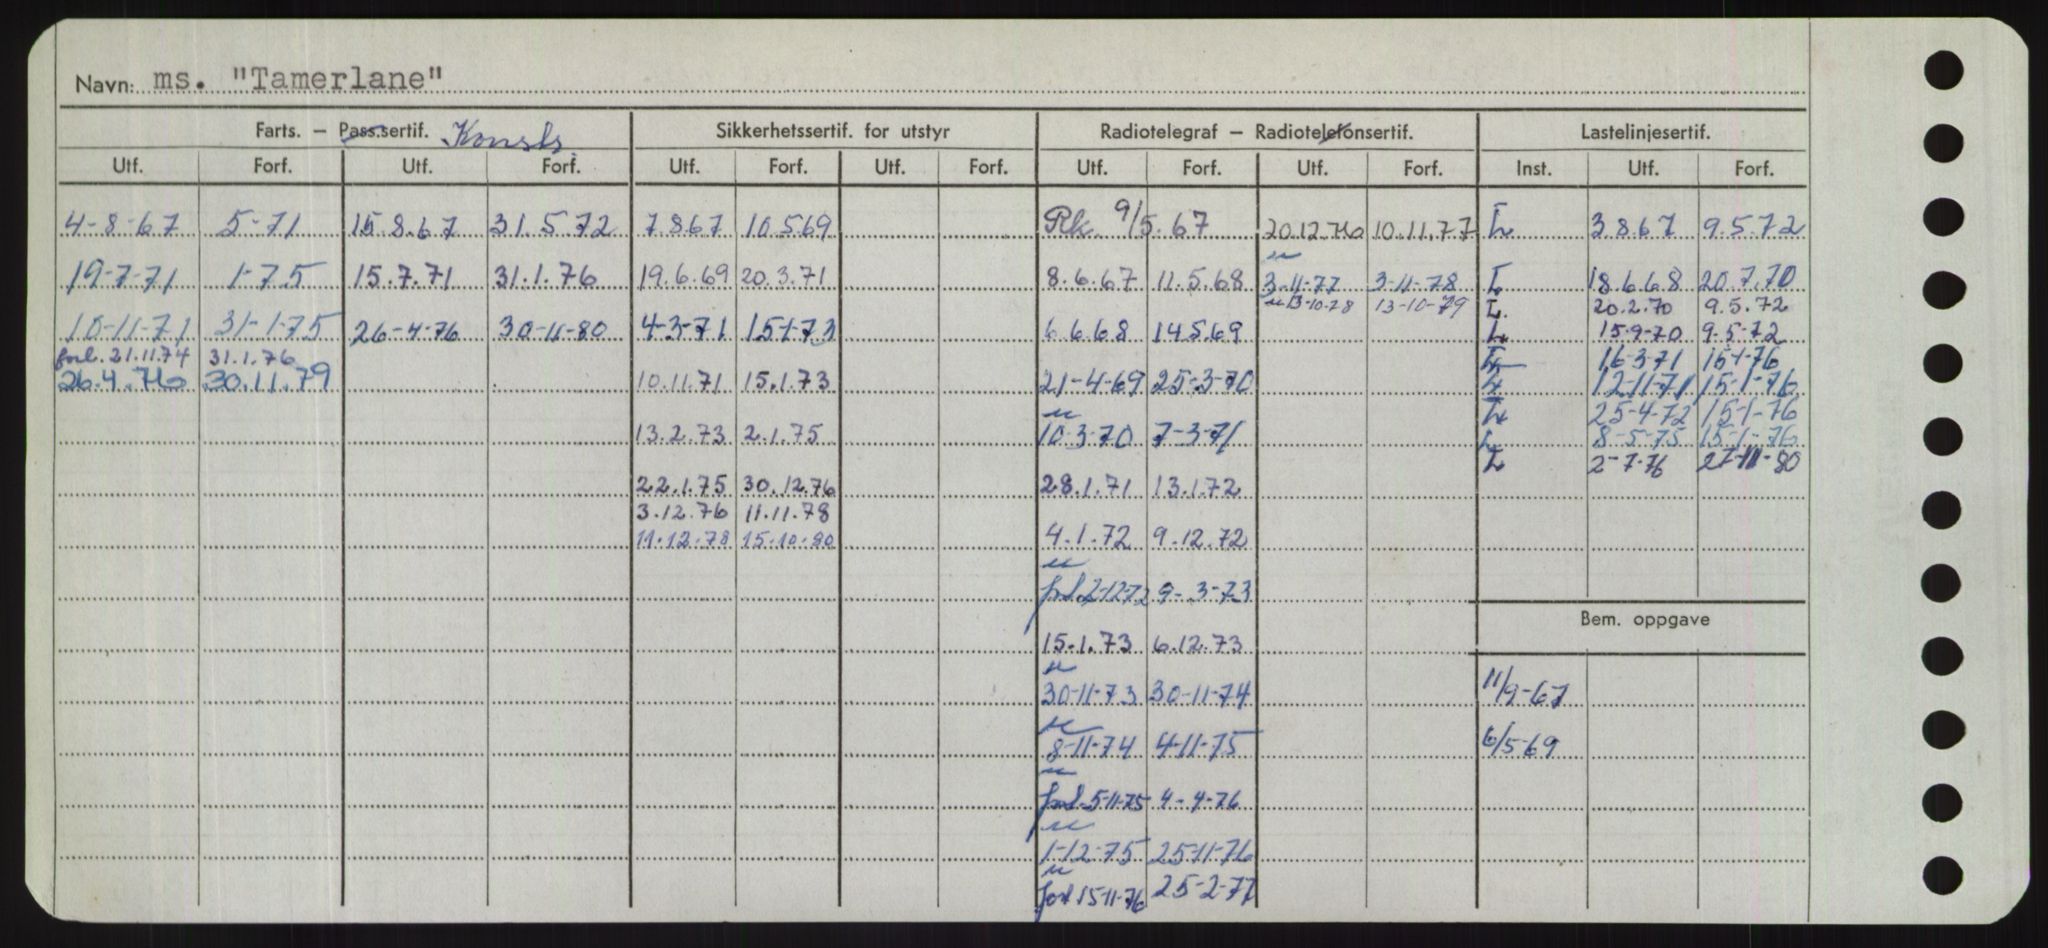 Navn: ms. "Tamerlane"
Farts. — Pass.sertif. Konstr. Sikkerhetssertif. for utstyr Radiotelegraf — Radiotelefonsertif. Lastelinjesertif.
Utf. Forf. Utf. Forf. Utf. Forf. Utf. Forf. Utf. Forf. Utf. Forf. Inst. Utf. Forf.
4-8-67 5-71 15.8.67 31.5.72 7.8.67 10.5.69 Rk 9/5.67 20.12.76 10.11.77 L 3.8.67 9.5.72
19-7-71 1-75 15.7.71 31.1.76 19.6.69 20.3.71 8.6.67 11.5.68 3-11-77 3-11-78 L 18.6.68 20.7.70
13-10-78 13-10-79 L. 20.2.70 9.5.72
10-11-71 31-1-75 26-4-76 30-11-80 4-3-71 15-1-73 6.6.68 14.5.69 L 15-9-70 9.5-72
forl. 21.11.74 31.1.76 L 16-3-71 15-1-76
26.4.76 30.11.79 10.11.71 15.1.73 21-4-69 25-3-70 L 12-11-71 15-1-76
L 25-4-72 15-1-76
13.2.73 2.1.75 10-3-70 7-3-71 L 8-5-75 15-1-76
L 2-7-76 27-11-80
22.1.75 30.12.76 28.1.71 13.1.72
3.12.76 11.11.78
11.12.78 15.10.80 4.1.72 9.12.72
forl. 2-12-72 9-3-73
Bem. oppgave
15.1.73 6.12.73
30-11-73 30-11-74 11/9-67
8-11-74 4-11-75 6/5 69
forl. 5-11-75 4-4-76
1-12-75 25-11-76
forl 15-11-76 25-2-77